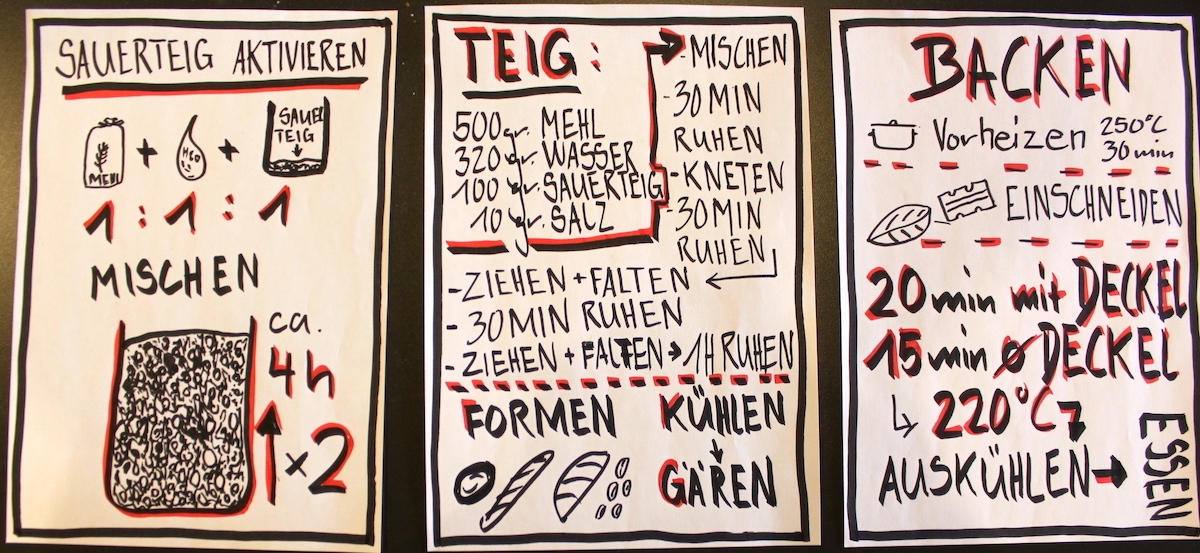 SAUERTEIG AKTIVIEREN
MEHL + H2O + SAUER
TEIG
1 : 1 : 1
MISCHEN
ca.
4h
x2
TEIG:
500 gr. MEHL
320 gr. WASSER
100 gr. SAUERTEIG
10 gr. SALZ
-MISCHEN
-30 MIN
RUHEN
-KNETEN
-30 MIN
RUHEN
-ZIEHEN + FALTEN
-30 MIN RUHEN
-ZIEHEN + FALTEN → 1H RUHEN
FORMEN
KÜHLEN
↓
GÄREN
BACKEN
Vorheizen 250°C
30 min
EINSCHNEIDEN
20 min mit DECKEL
15 min ø DECKEL
↳ 220°C
AUSKÜHLEN →
ESSEN